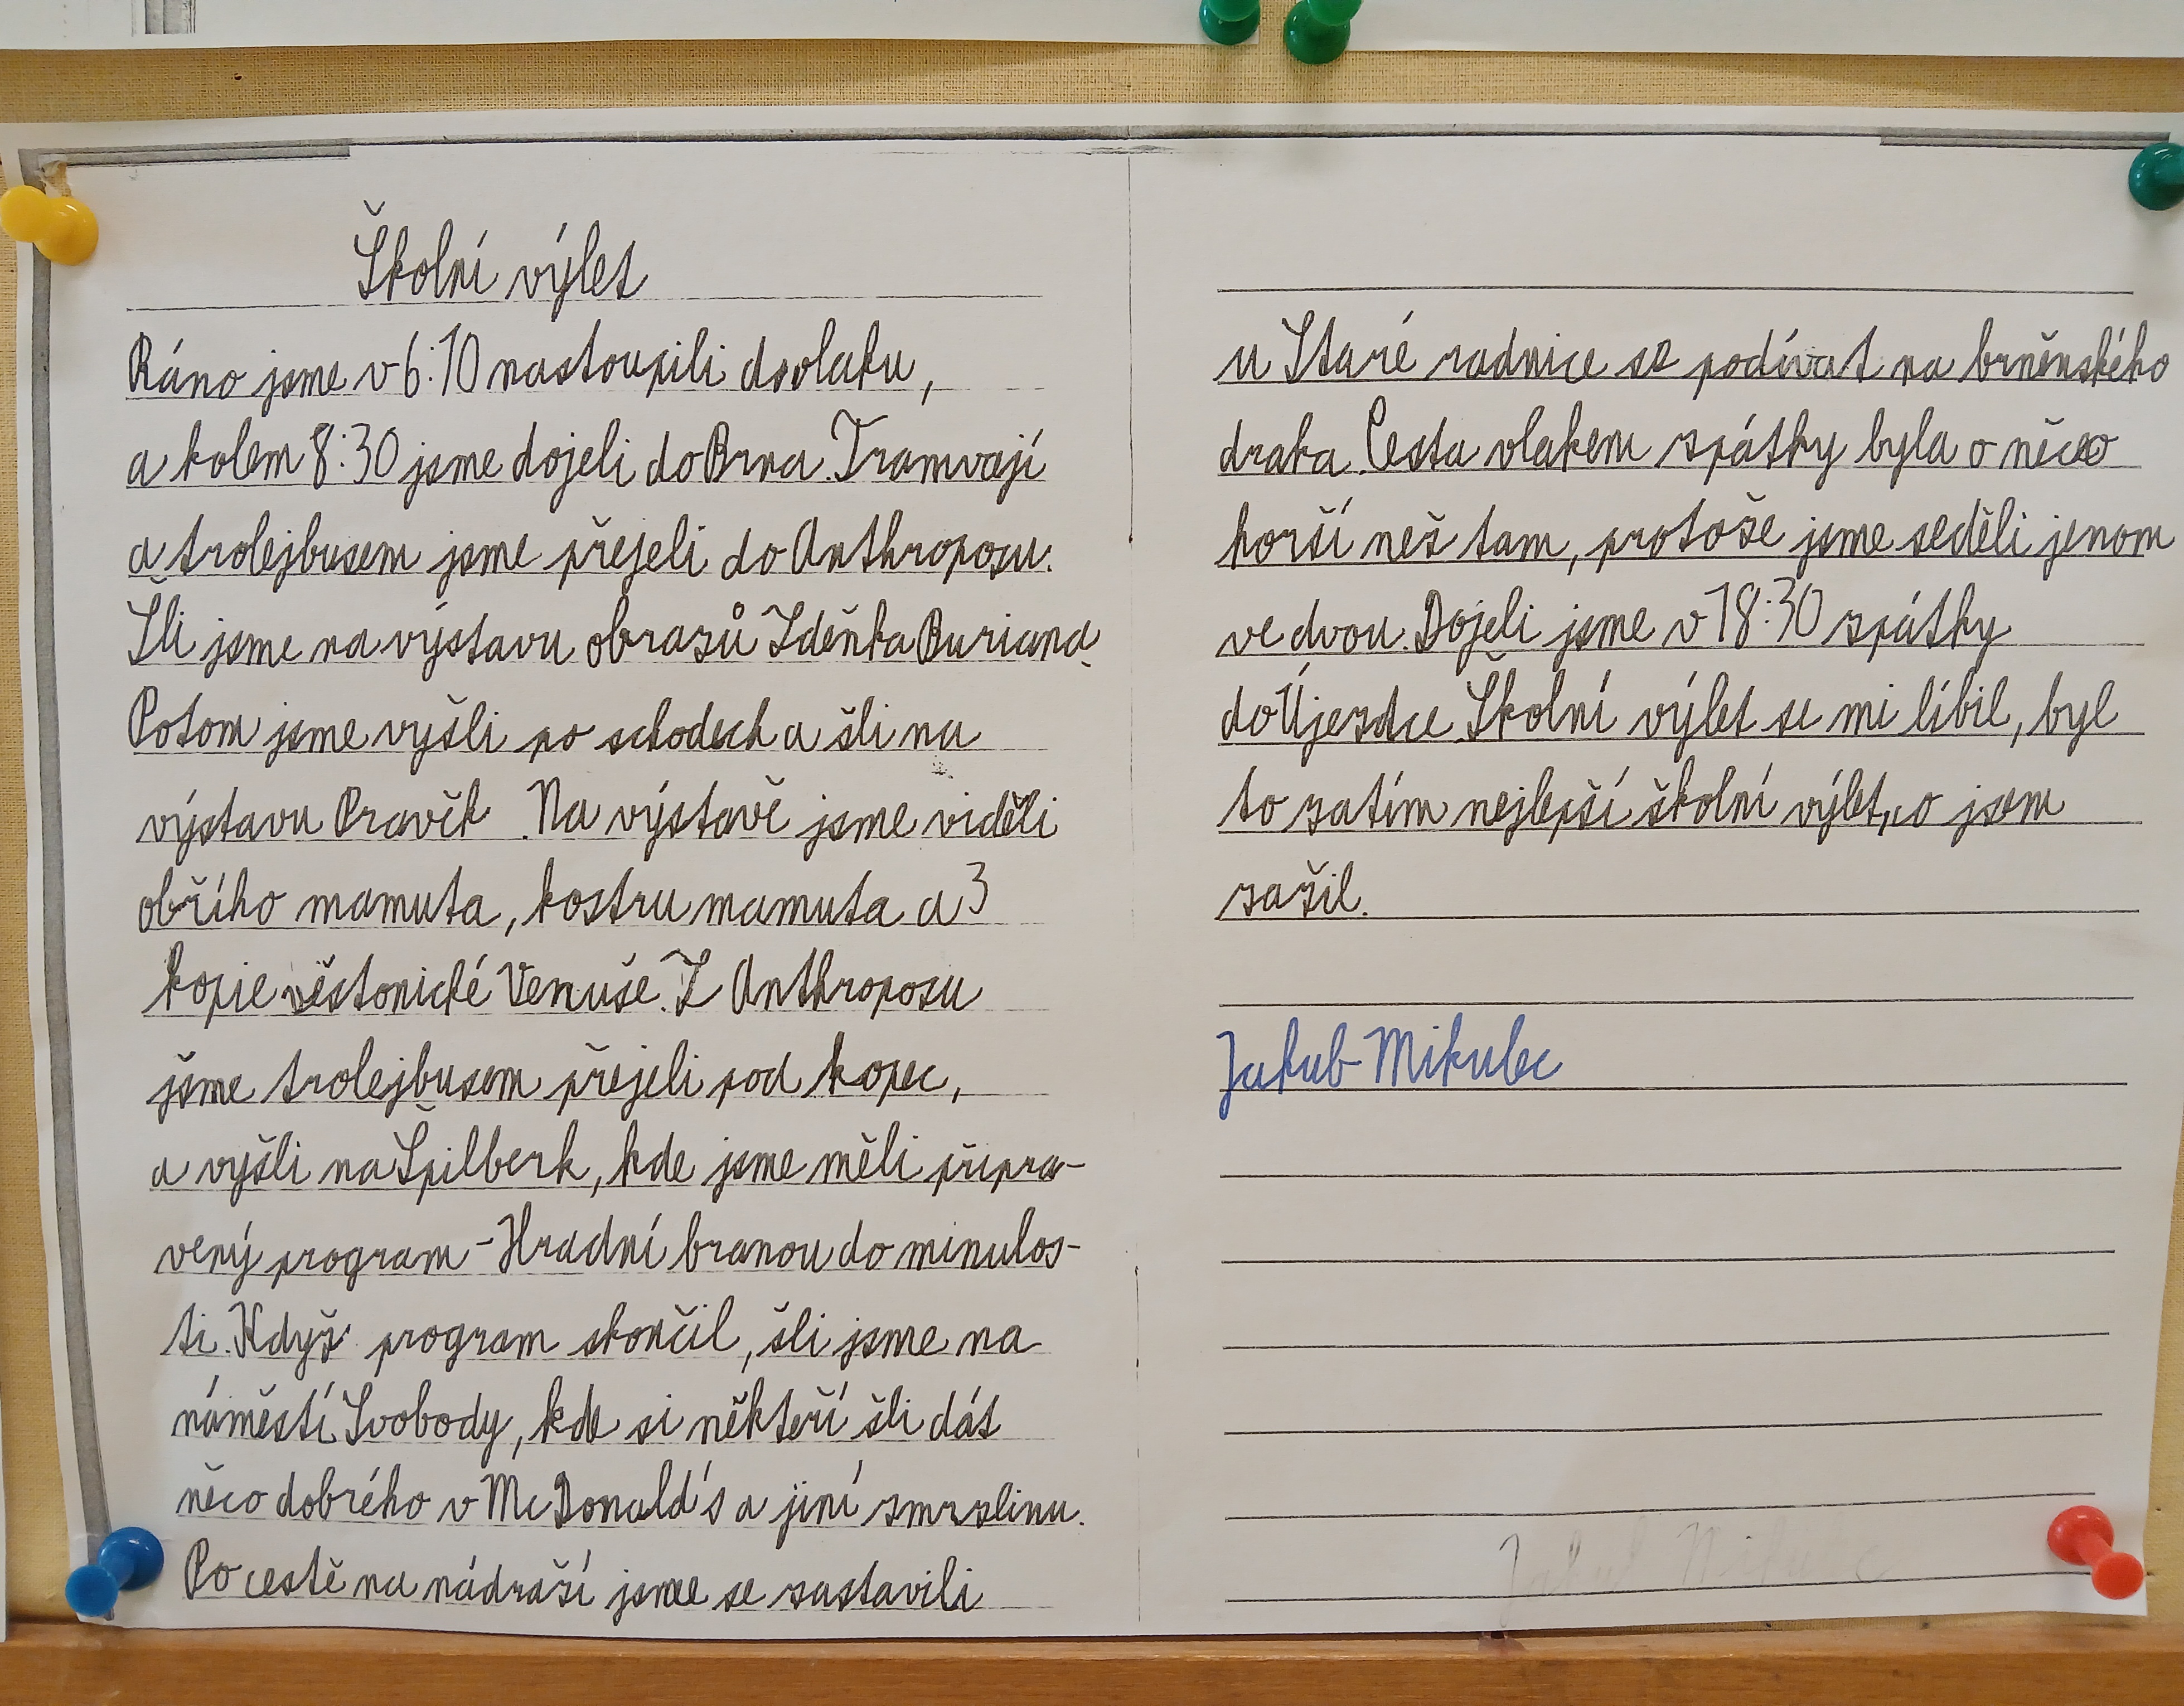 Školní výlet
Ráno jsme v 6:10 nastoupili do vlaku,
a kolem 8:30 jsme dojeli do Brna. Tramvají
a trolejbusem jsme přejeli do Anthroposu.
Šli jsme na výstavu obrazů Zdeňka Buriana.
Potom jsme vyšli po schodech a šli na
výstavu Pravěk. Na výstavě jsme viděli
obřího mamuta, kostru mamuta a 3
kopie věstonické Venuše. Z Anthroposu
jsme trolejbusem přejeli pod kopec,
a vyšli na Špilberk, kde jsme měli připra-
vený program - Hradní branou do minulos-
ti. Když program skončil, šli jsme na
náměstí Svobody, kde si někteří šli dát
něco dobrého v McDonald's a jiní zmrzlinu.
Po cestě na nádraží jsme se zastavili
u Staré radnice se podívat na brněnského
draka. Cesta vlakem zpátky byla o něco
horší než tam, protože jsme seděli jenom
ve dvou. Dojeli jsme v 18:30 zpátky
do Újezdce. Školní výlet se mi líbil, byl
to zatím nejlepší školní výlet, co jsem
zažil.
Jakub Mikulec